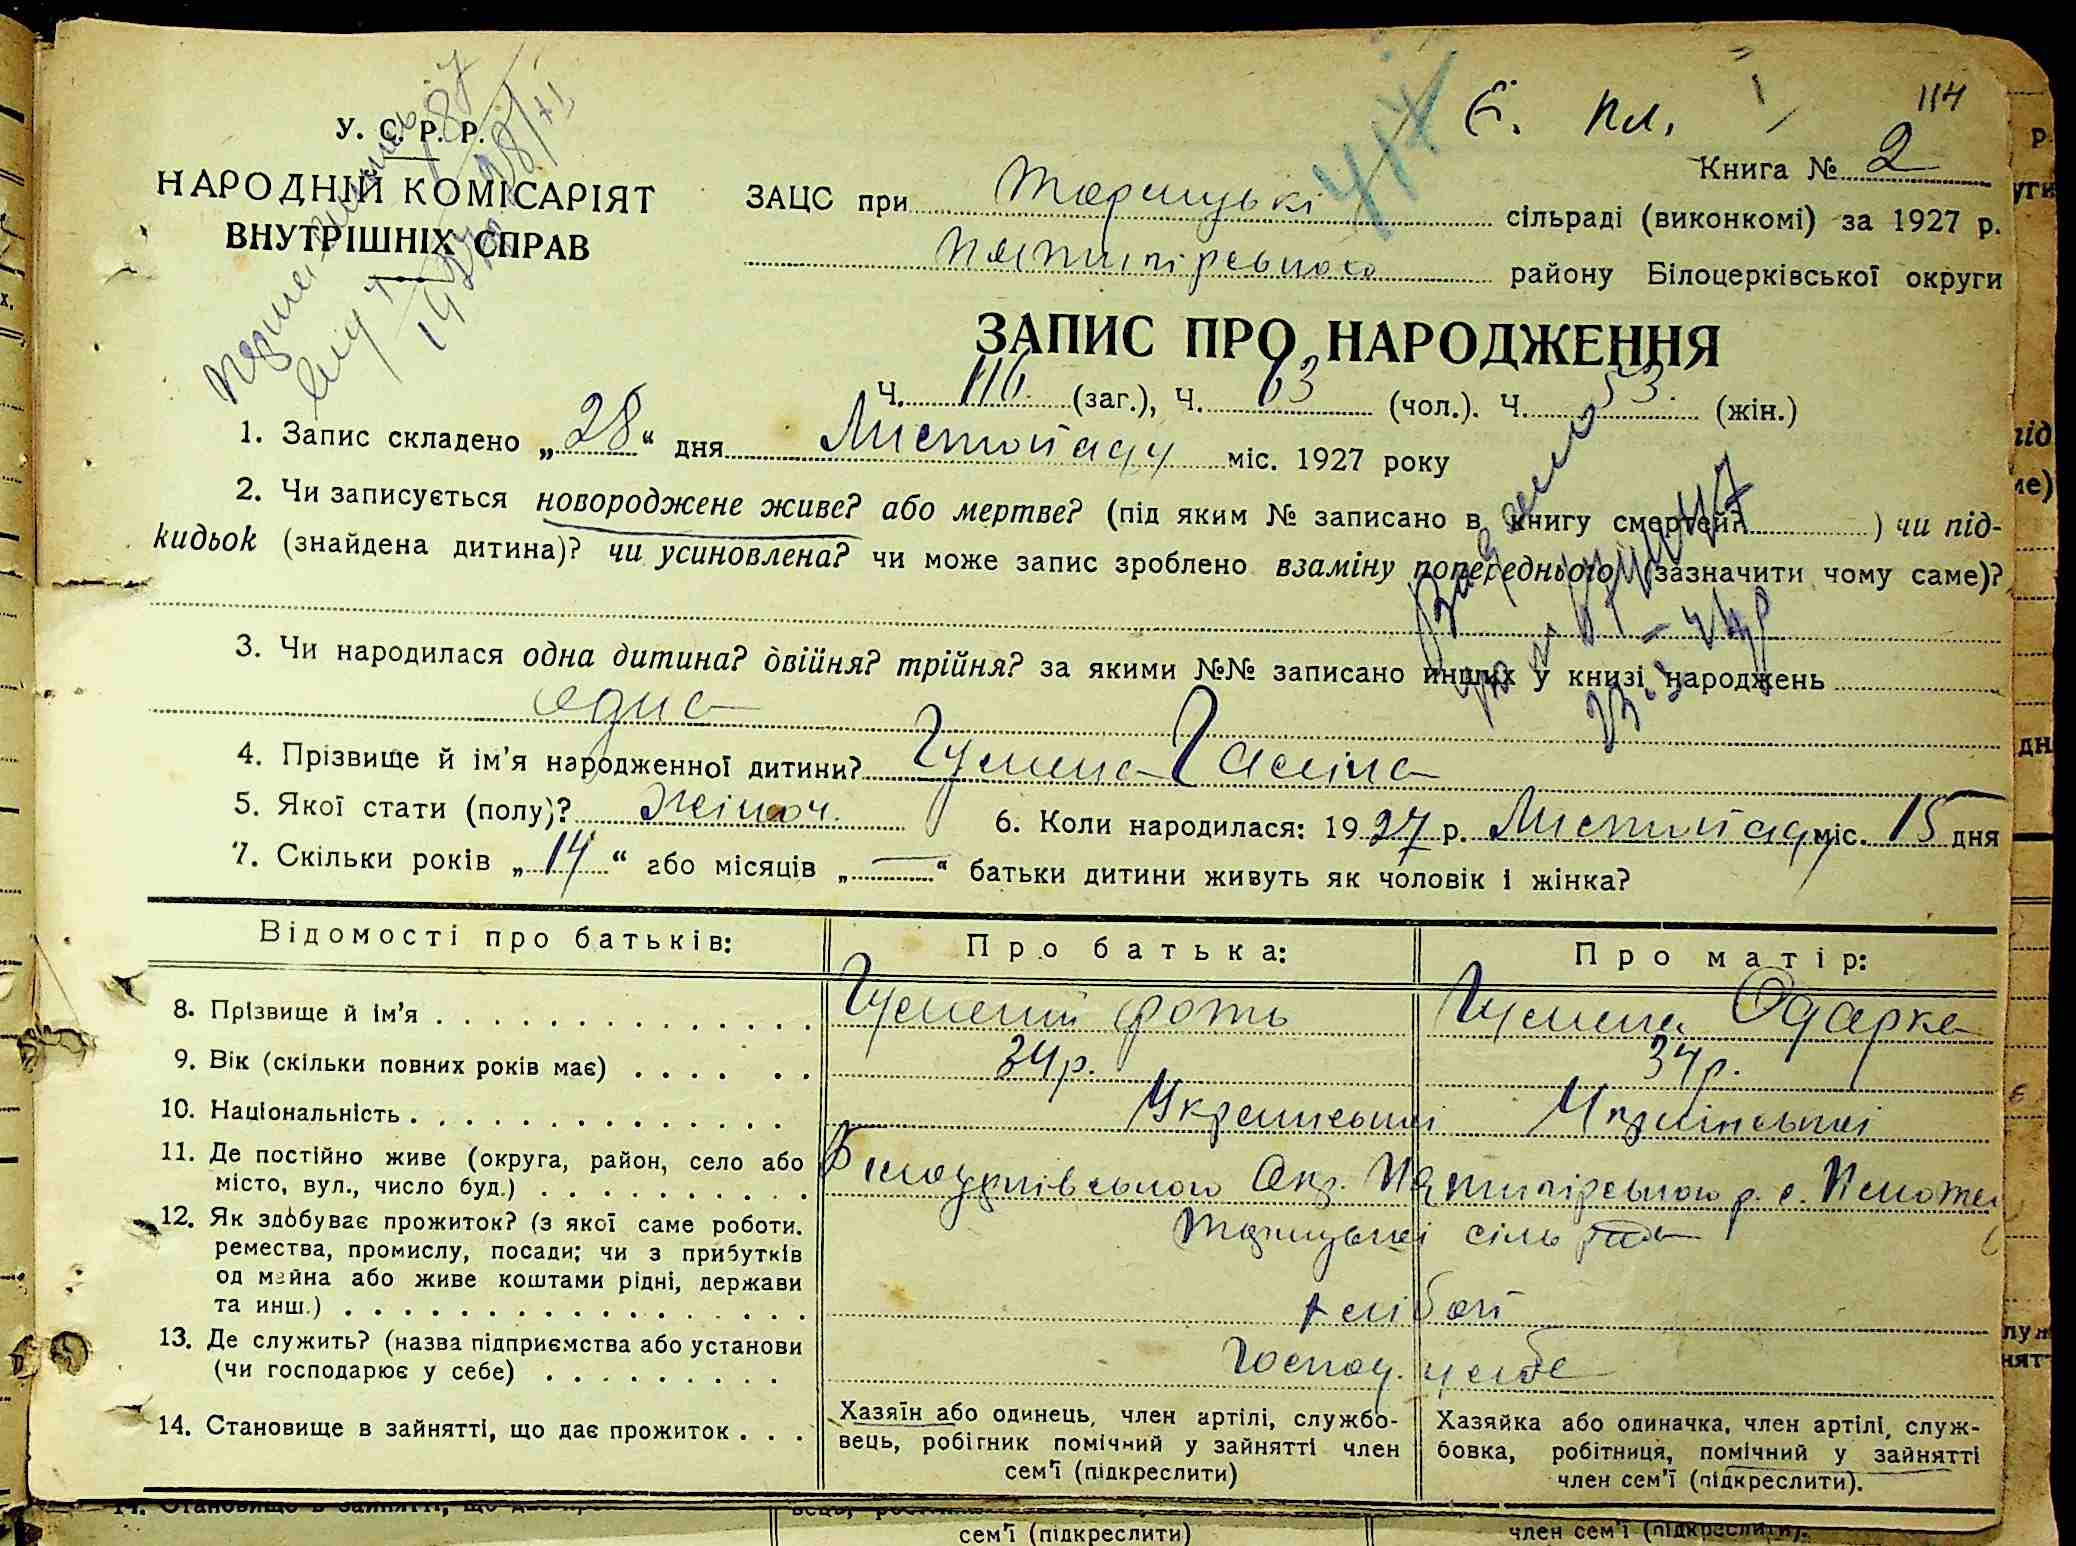 114
Є. пл.
У. С. Р. Р.
НАРОДНІЙ КОМІСАРІЯТ
ВНУТРІШНІХ СПРАВ
417
Книга № 2
ЗАЦС при Торчицькі сільраді (виконкомі) за 1927 р.
Пятигірського району Білоцерківської округи
ЗАПИС ПРО НАРОДЖЕННЯ
Ч. 116. (заг.), Ч. 63 (чол.). Ч. 53. (жін.)
1. Запис складено „28“ дня Листопаду міс. 1927 року
2. Чи записується новороджене живе? або мертве? (під яким № записано в книгу смертей? ) чи під-
кидьок (знайдена дитина)? чи усиновлена? чи може запис зроблено взаміну попереднього (зазначити чому саме)?
3. Чи народилася одна дитина? двійня? трійня? за якими №№ записано инших у книзі народжень
одна
4. Прізвище й ім'я народженної дитини? Гумена Галіна
5. Якої стати (полу)? жіноч. 6. Коли народилася: 1927 р. Листопаду міс. 15 дня
7. Скільки років „14“ або місяців „—“ батьки дитини живуть як чоловік і жінка?
Відомості про батьків: Про батька: Про матір:
8. Прізвище й ім'я Гумений Фоть Гумена Одарка
9. Вік (скільки повних років має) 34 р. 34 р.
10. Національність Української Української
11. Де постійно живе (округа, район, село або Білоцерківського Окр. Пятигірського р. с.
місто, вул., число буд.) Торчицької сільради
12. Як здобуває прожиток? (з якої саме роботи.
ремества, промислу, посади; чи з прибутків
од майна або живе коштами рідні, держави
та инш.) хлібороб
13. Де служить? (назва підприємства або установи
(чи господарює у себе) Господ. у себе
14. Становище в зайнятті, що дає прожиток
Хазяїн або одинець, член артілі, службо-
вець, робігник помічний у зайнятті член
сем'ї (підкреслити)
Хазяйка або одиначка, член артілі, служ-
бовка, робітниця, помічний у зайнятті
член сем'ї (підкреслити).
14. Становище в зайнятті, що
сем'ї (підкреслити)
член сем'ї (підкреслити).